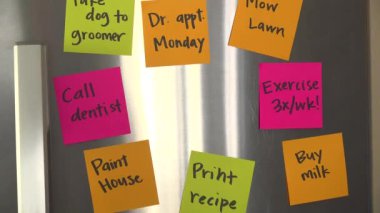 Take
dog to
groomer
Dr. appt.
Monday
Mow
Lawn
Call
dentist
Exercise
3x/wk!
Paint
House
Print
recipe
Buy
milk